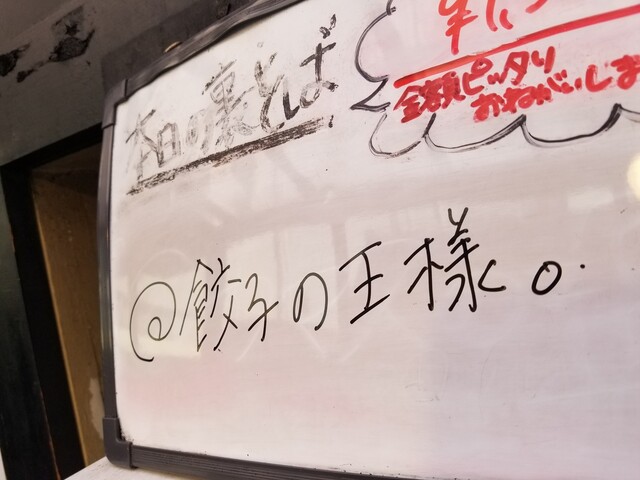 本日の裏とんぼ
金額ピッタリ
おねがいしま
@餃子の王様。